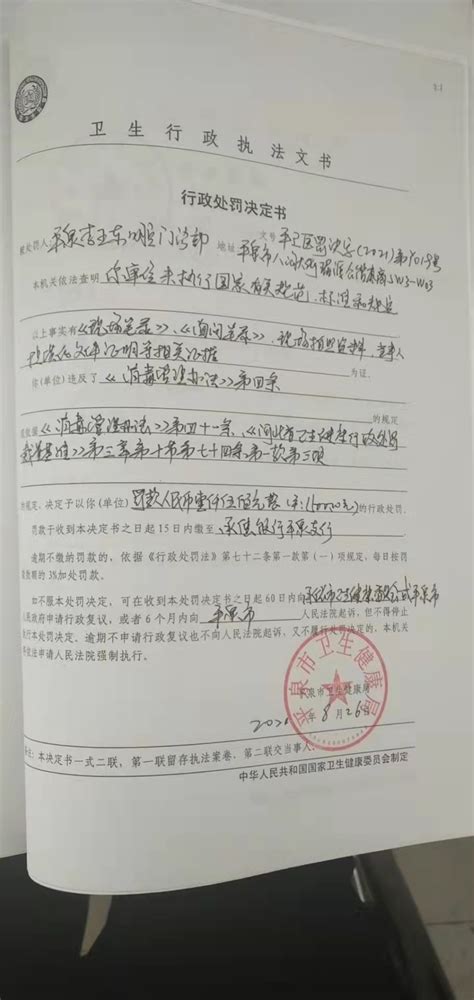 卫生行政执法文书
行政处罚决定书
被处罚人 平泉李玉东口腔门诊部 地址 平泉市
文号 平卫医罚决字(2021)第
本机关依法查明 你单位未执行国家有关规范、标准和规定
以上事实有《现场笔录》、《询问笔录》、现场拍照资料、当事人
提供的文件证明等相关证据 为证。
你(单位)违反了《消毒管理办法》第四条
的规定
依据《消毒管理办法》第四十一条、《河北省卫生健康行政处罚
裁量基准》第三章第十节第七十四条第一款第三项
的规定,决定予以你(单位) 罚款人民币壹仟伍佰元整 的行政处罚。
罚款于收到本决定书之日起15日内缴至 承德银行平泉支行
逾期不缴纳罚款的,依据《行政处罚法》第七十二条第一款第(一)项规定,每日按罚
款数额的3%加处罚款。
如不服本处罚决定,可在收到本处罚决定书之日起60日内向 承德市卫生健康委员会或平泉市
人民政府申请行政复议,或者6个月内向 平泉市 人民法院起诉,但不得停止
执行本处罚决定。逾期不申请行政复议也不向人民法院起诉,又不履行处罚决定的,本机关
将依法申请人民法院强制执行。
平泉市卫生健康局
平泉市卫生健康局
2021年8月26日
备注:本决定书一式二联,第一联留存执法案卷,第二联交当事人。
中华人民共和国国家卫生健康委员会制定